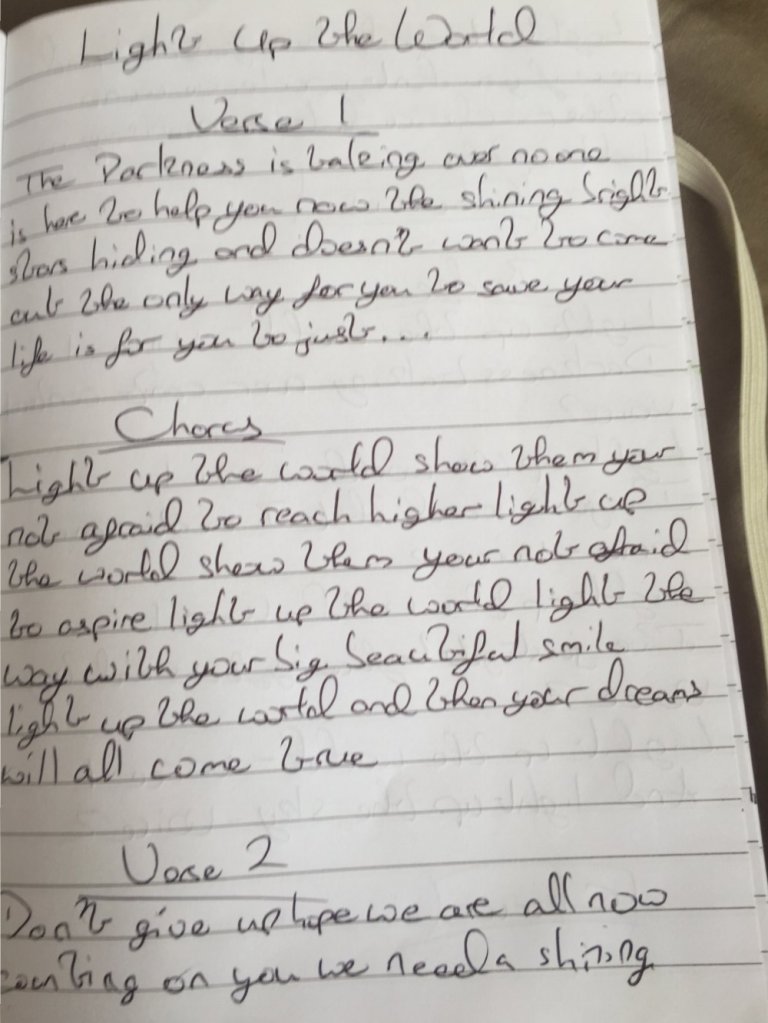 Light up the World
Verse 1
The Darkness is taking over no one
is here to help you now the shining bright
stars hiding and doesn't want to come
out the only way for you to save your
life is for you to just...
Chorus
Light up the world show them your
not afraid to reach higher light up
the world show them your not afraid
to aspire light up the world light the
way with your big beautiful smile
light up the world and then your dreams
will all come true
Verse 2
Don't give up hope we are all now
counting on you we need a shining